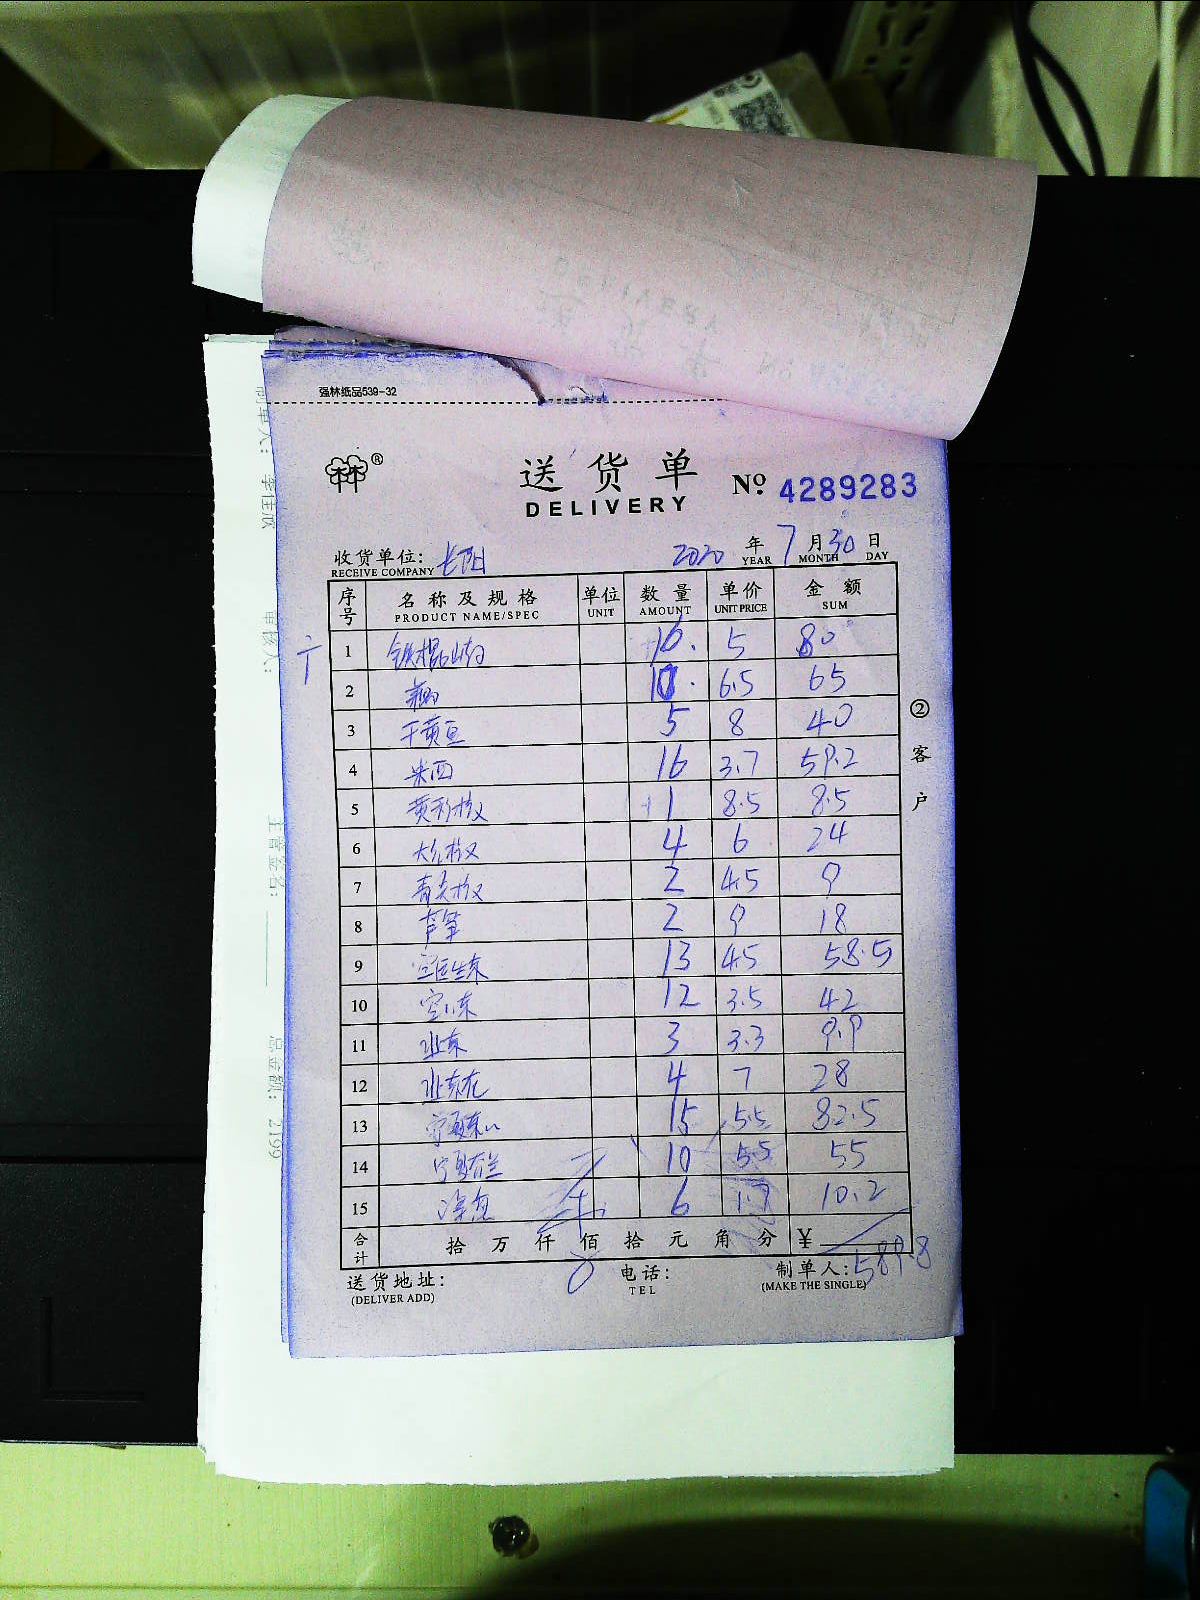 强林纸品539-32
林林®
送货单
DELIVERY
No. 4289283
收货单位: 长阳 2020 年 7 月 30 日
RECEIVE COMPANY YEAR MONTH DAY
序号 名称及规格 单位 数量 单价 金额
PRODUCT NAME/SPEC UNIT AMOUNT UNIT PRICE SUM
1 铁棍山药 16. 5 80
2 10. 6.5 65
3 干黄豆 5 8 40
4 米西 16 3.7 59.2
5 黄彩椒 1 8.5 8.5
6 大红椒 4 6 24
7 青尖椒 2 4.5 9
8 芦笋 2 9 18
9 13 4.5 58.5
10 12 3.5 42
11 3 3.3 9.9
12 4 7 28
13 15 5.5 82.5
14 10 5.5 55
15 6 1.7 10.2
合计 拾 万 仟 佰 拾 元 角 分 ¥ 589.8
送货地址: 电话: 制单人:
(DELIVER ADD) TEL (MAKE THE SINGLE)
② 客户
制单人:
审核人:
主管签名:
总金额: 2199